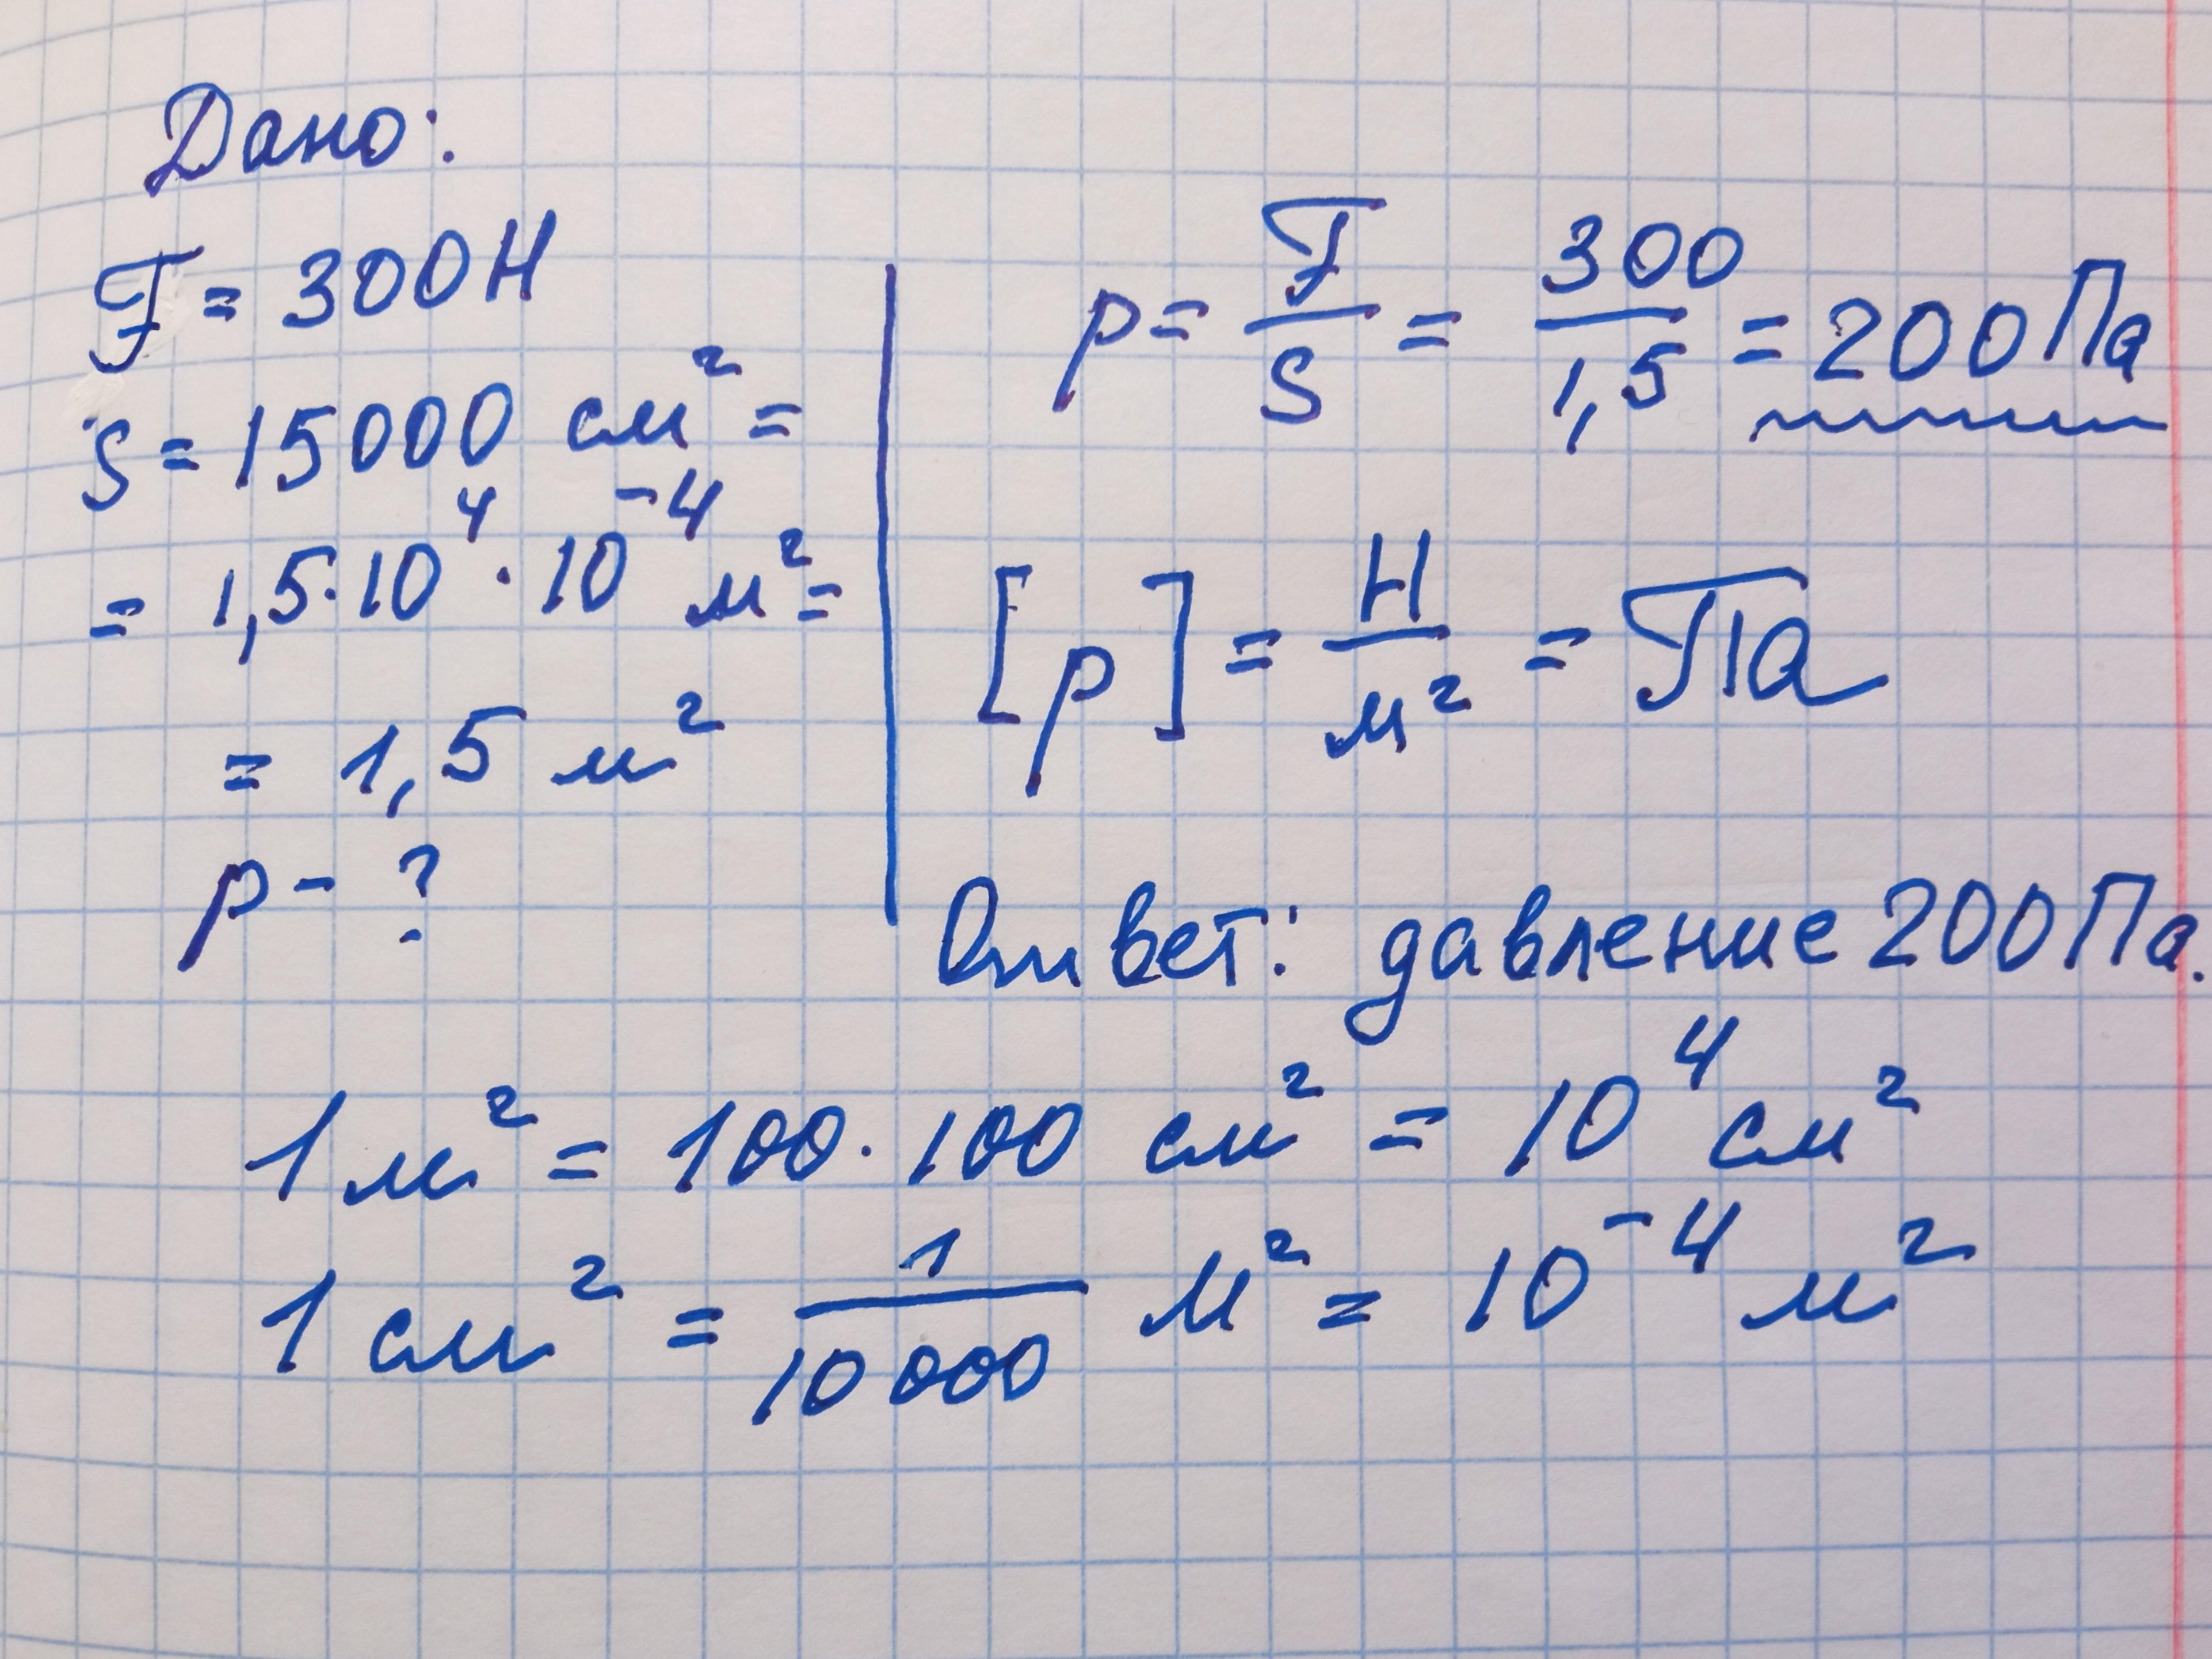 Дано:
F = 300Н
S = 15000 см² =
= 1,5·10⁴·10⁻⁴ м² =
= 1,5 м²
p - ?
p = F/S = 300/1,5 = 200 Па
[p] = Н/м² = Па
Ответ: давление 200 Па.
1 м² = 100·100 см² = 10⁴ см²
1 см² = 1/10000 м² = 10⁻⁴ м²